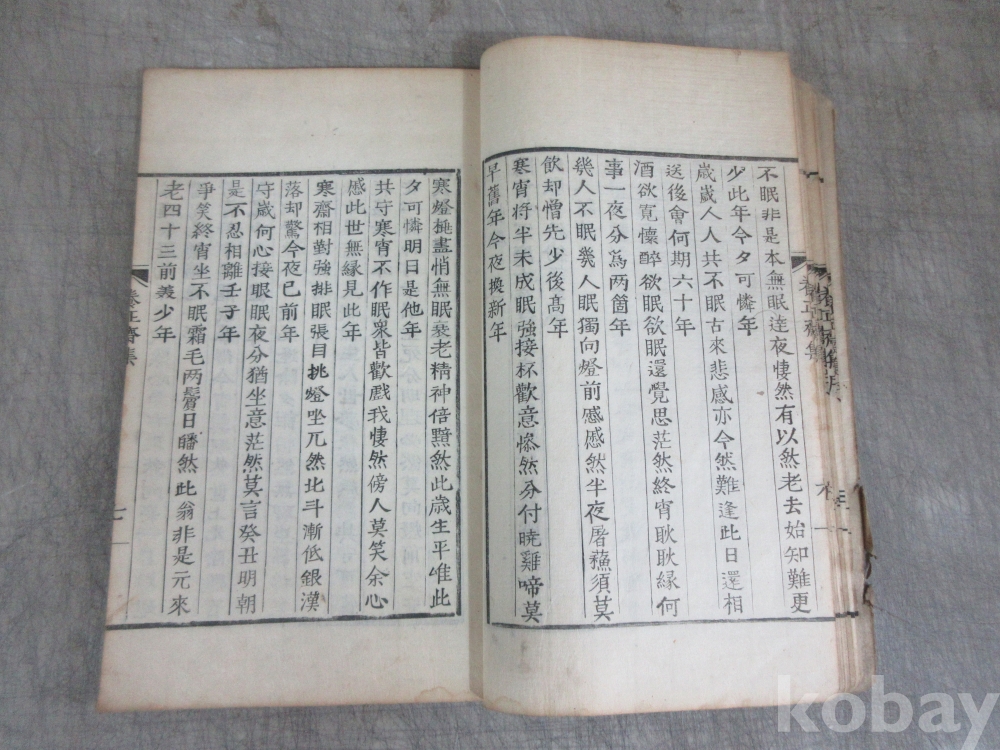 不眠非是本無眠達夜悽然有以然老去始知難更
少此年今夕可憐年
歲歲人人共不眠古來悲感亦今然難逢此日還相
送後會何期六十年
酒欲寬懷醉欲眠欲眠還覺思茫然終宵耿耿緣何
事一夜分爲两箇年
幾人不眠幾人眠獨向燈前慼慼然半夜屠蘓須莫
飮却憎先少後高年
寒宵将半未成眠強接杯歡意慘然分付曉雞啼莫
早舊年今夜換新年
寒燈挑盡悄無眠衰老精神倍黯然此歲生平唯此
夕可憐明日是他年
共守寒宵不作眠衆皆歡戲我悽然傍人莫笑余心
慼此世無緣見此年
寒齋相對強排眠張目挑燈坐兀然北斗漸低銀漢
落却驚今夜已前年
守歲何心接眼眠夜分猶坐意茫然莫言癸丑明朝
是不忍相離壬子年
爭笑終宵坐不眠霜毛两鬢日皤然此翁非是元來
老四十三前義少年
正齋集
kobay